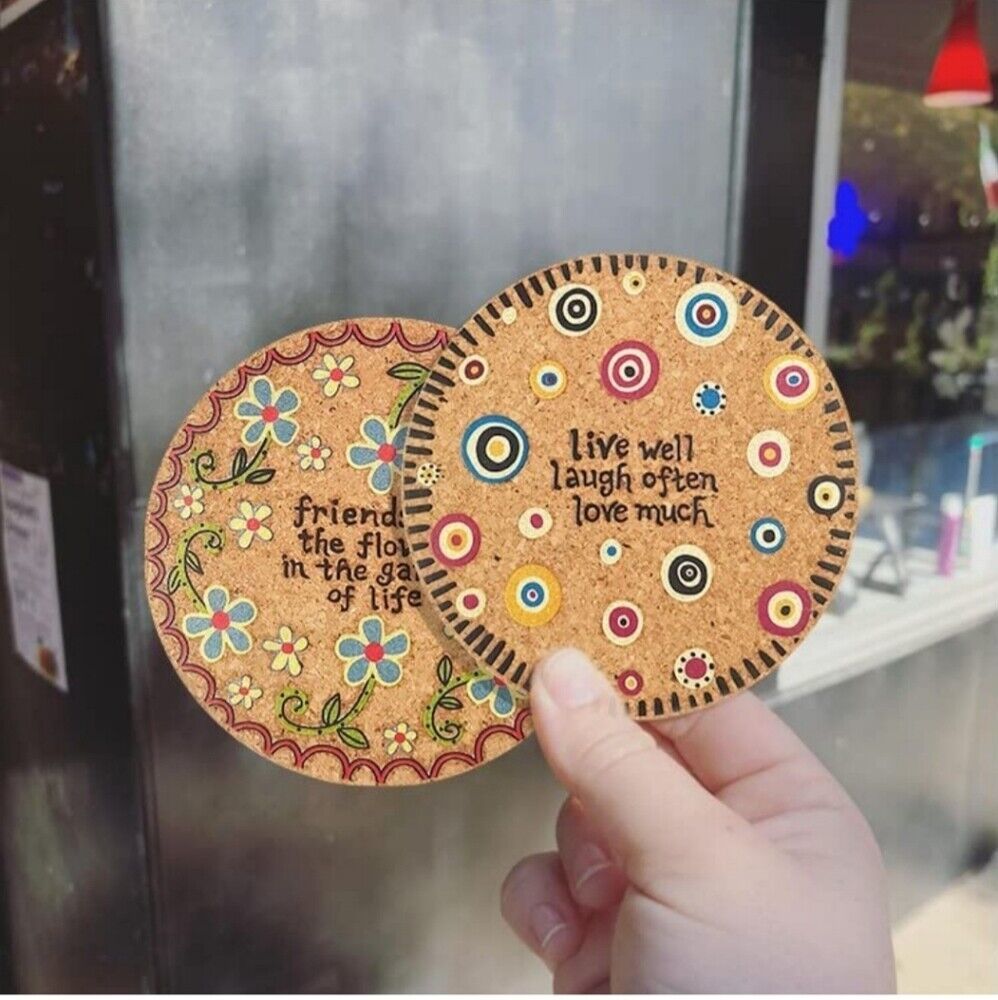 friends
the flow
in the ga
of life
live well
laugh often
love much